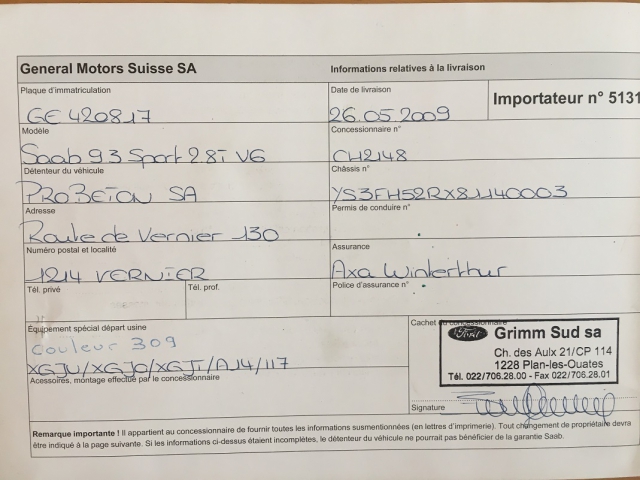 General Motors Suisse SA
Informations relatives à la livraison
Plaque d'immatriculation
GE 420817
Date de livraison
26.05.2009
Importateur n° 5131
Modèle
Saab 93 Sport 2.8T V6
Concessionnaire n°
CH2148
Détenteur du véhicule
PROBETON SA
Châssis n°
YS3FH52RX81140003
Adresse
Route de Vernier 130
Permis de conduire n°
Numéro postal et localité
1214 VERNIER
Assurance
Axa Winterthur
Tél. privé
Tél. prof.
Police d'assurance n°
Équipement spécial départ usine
couleur 309
XGJU/XGJO/XGTi/AJ4/117
Acessoires, montage effectué par le concessionnaire
Cachet du concessionnaire
Ford
Grimm Sud sa
Ch. des Aulx 21/CP 114
1228 Plan-les-Ouates
Tél. 022/706.28.00 - Fax 022/706.28.01
Signature
Remarque importante ! Il appartient au concessionnaire de fournir toutes les informations susmentionnées (en lettres d'imprimerie). Tout changement de propriétaire devra
être indiqué à la page suivante. Si les informations ci-dessus étaient incomplètes, le détenteur du véhicule ne pourrait pas bénéficier de la garantie Saab.